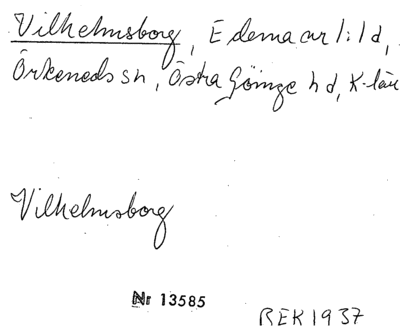 Vilhelmsborg, Edema ar l:ld,
Örkeneds sn, Östra Göinge hd, K-län
Vilhelmsborg
Nr 13585
REK1937